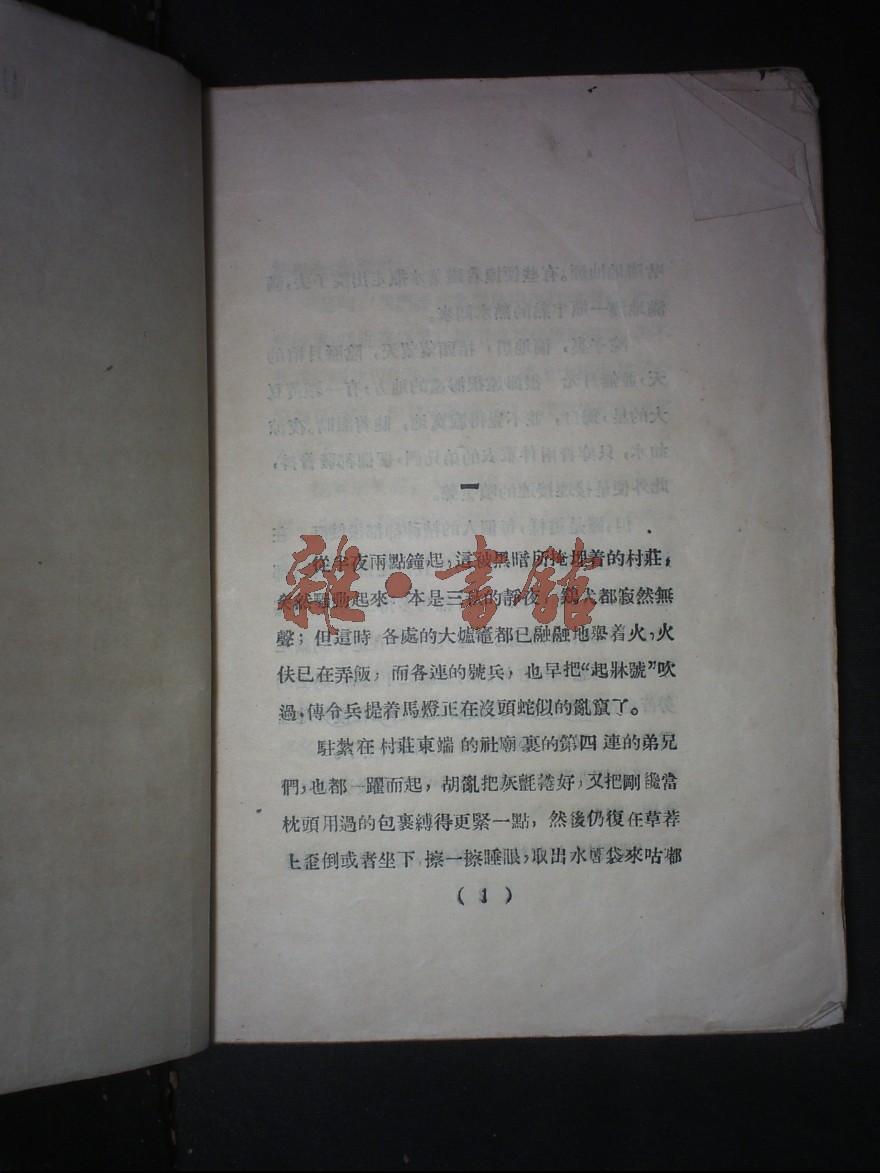 一
從半夜兩點鐘起，這被黑暗所掩埋着的村莊，
突然騷動起來 本是三秋的靜夜，鷄犬都寂然無
聲；但這時 各處的大爐竈都已融融地舉着火，火
伕已在弄飯，而各連的號兵，也早把“起牀號”吹
過，傳令兵提着馬燈正在沒頭蛇似的亂竄了。
駐紮在村莊東端的社廟裏的第四連的弟兄
們，也都一躍而起，胡亂把灰氈捲好，又把剛纔當
枕頭用過的包裹縛得更緊一點，然後仍復在草荐
上歪倒或者坐下 擦一擦睡眼，取出水 袋來咕嘟
( 1 )
雜·書館